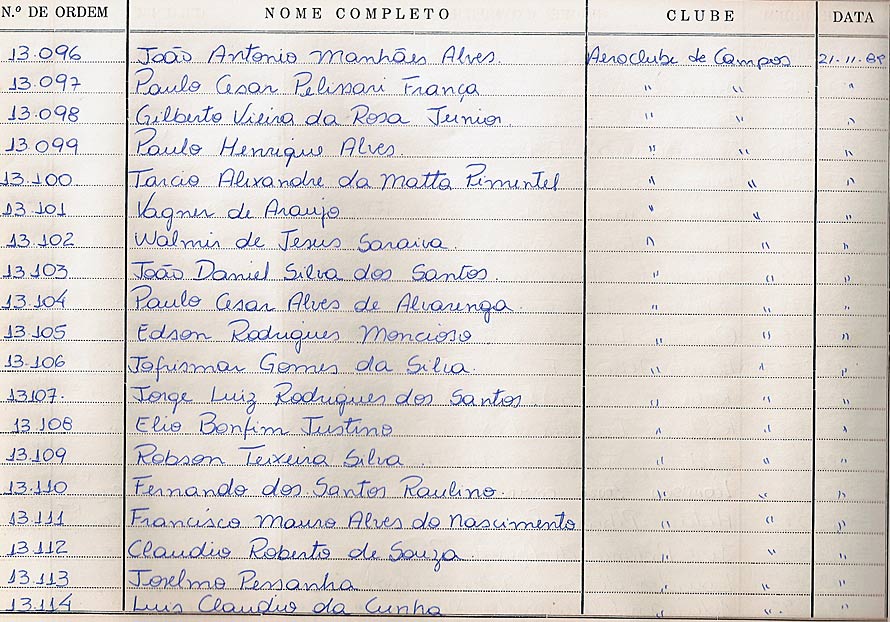 N.º DE ORDEM NOME COMPLETO CLUBE DATA
13.096 João Antonio Manhães Alves. Aeroclube de Campos 21.11.88
13.097 Paulo Cesar Pelissari França " " "
13.098 Gilberto Vieira da Rosa Junior. " " "
13.099 Paulo Henrique Alves. " " "
13.100 Tarcio Alexandre da Matta Pimentel " " "
13.101 Vagner de Araujo " " "
13.102 Walmir de Jesus Saraiva. " " "
13.103 João Daniel Silva dos Santos. " " "
13.104 Paulo Cesar Alves de Alvarenga. " " "
13.105 Edson Rodrigues Moncioso " " "
13.106 Jofrismar Gomes da Silva. " " "
13107. Jorge Luiz Rodrigues dos Santos. " " "
13.108 Elio Bonfim Justino " " "
13.109 Robson Teixeira Silva. " " "
13.110 Fernando dos Santos Raulino. " " "
13.111 Francisco Mauro Alves do Nascimento " " "
13.112 Claudio Roberto de Souza. " " "
13.113 Joselmo Pessanha " " "
13.114 Luis Claudio da Cunha " " "